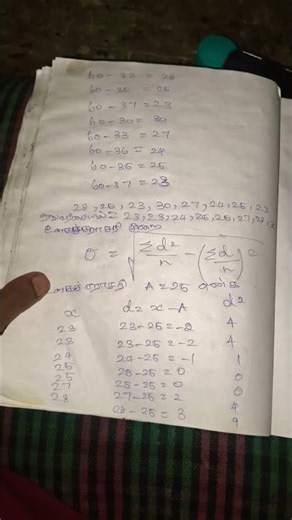 60 - 32 = 28
60 - 35 = 25
60 - 37 = 23
60 - 30 = 30
60 - 33 = 27
60 - 36 = 24
60 - 35 = 25
60 - 37 = 23
28, 25, 23, 30, 27, 24, 25, 23
23, 23, 24, 25, 25, 27, 28
σ = √ Σd²/n - (Σd/n)²
A = 25 என்க
x d = x - A d²
23 23 - 25 = -2 4
23 23 - 25 = -2 4
24 24 - 25 = -1 1
25 25 - 25 = 0 0
25 25 - 25 = 0 0
27 27 - 25 = 2 4
28 28 - 25 = 3 9